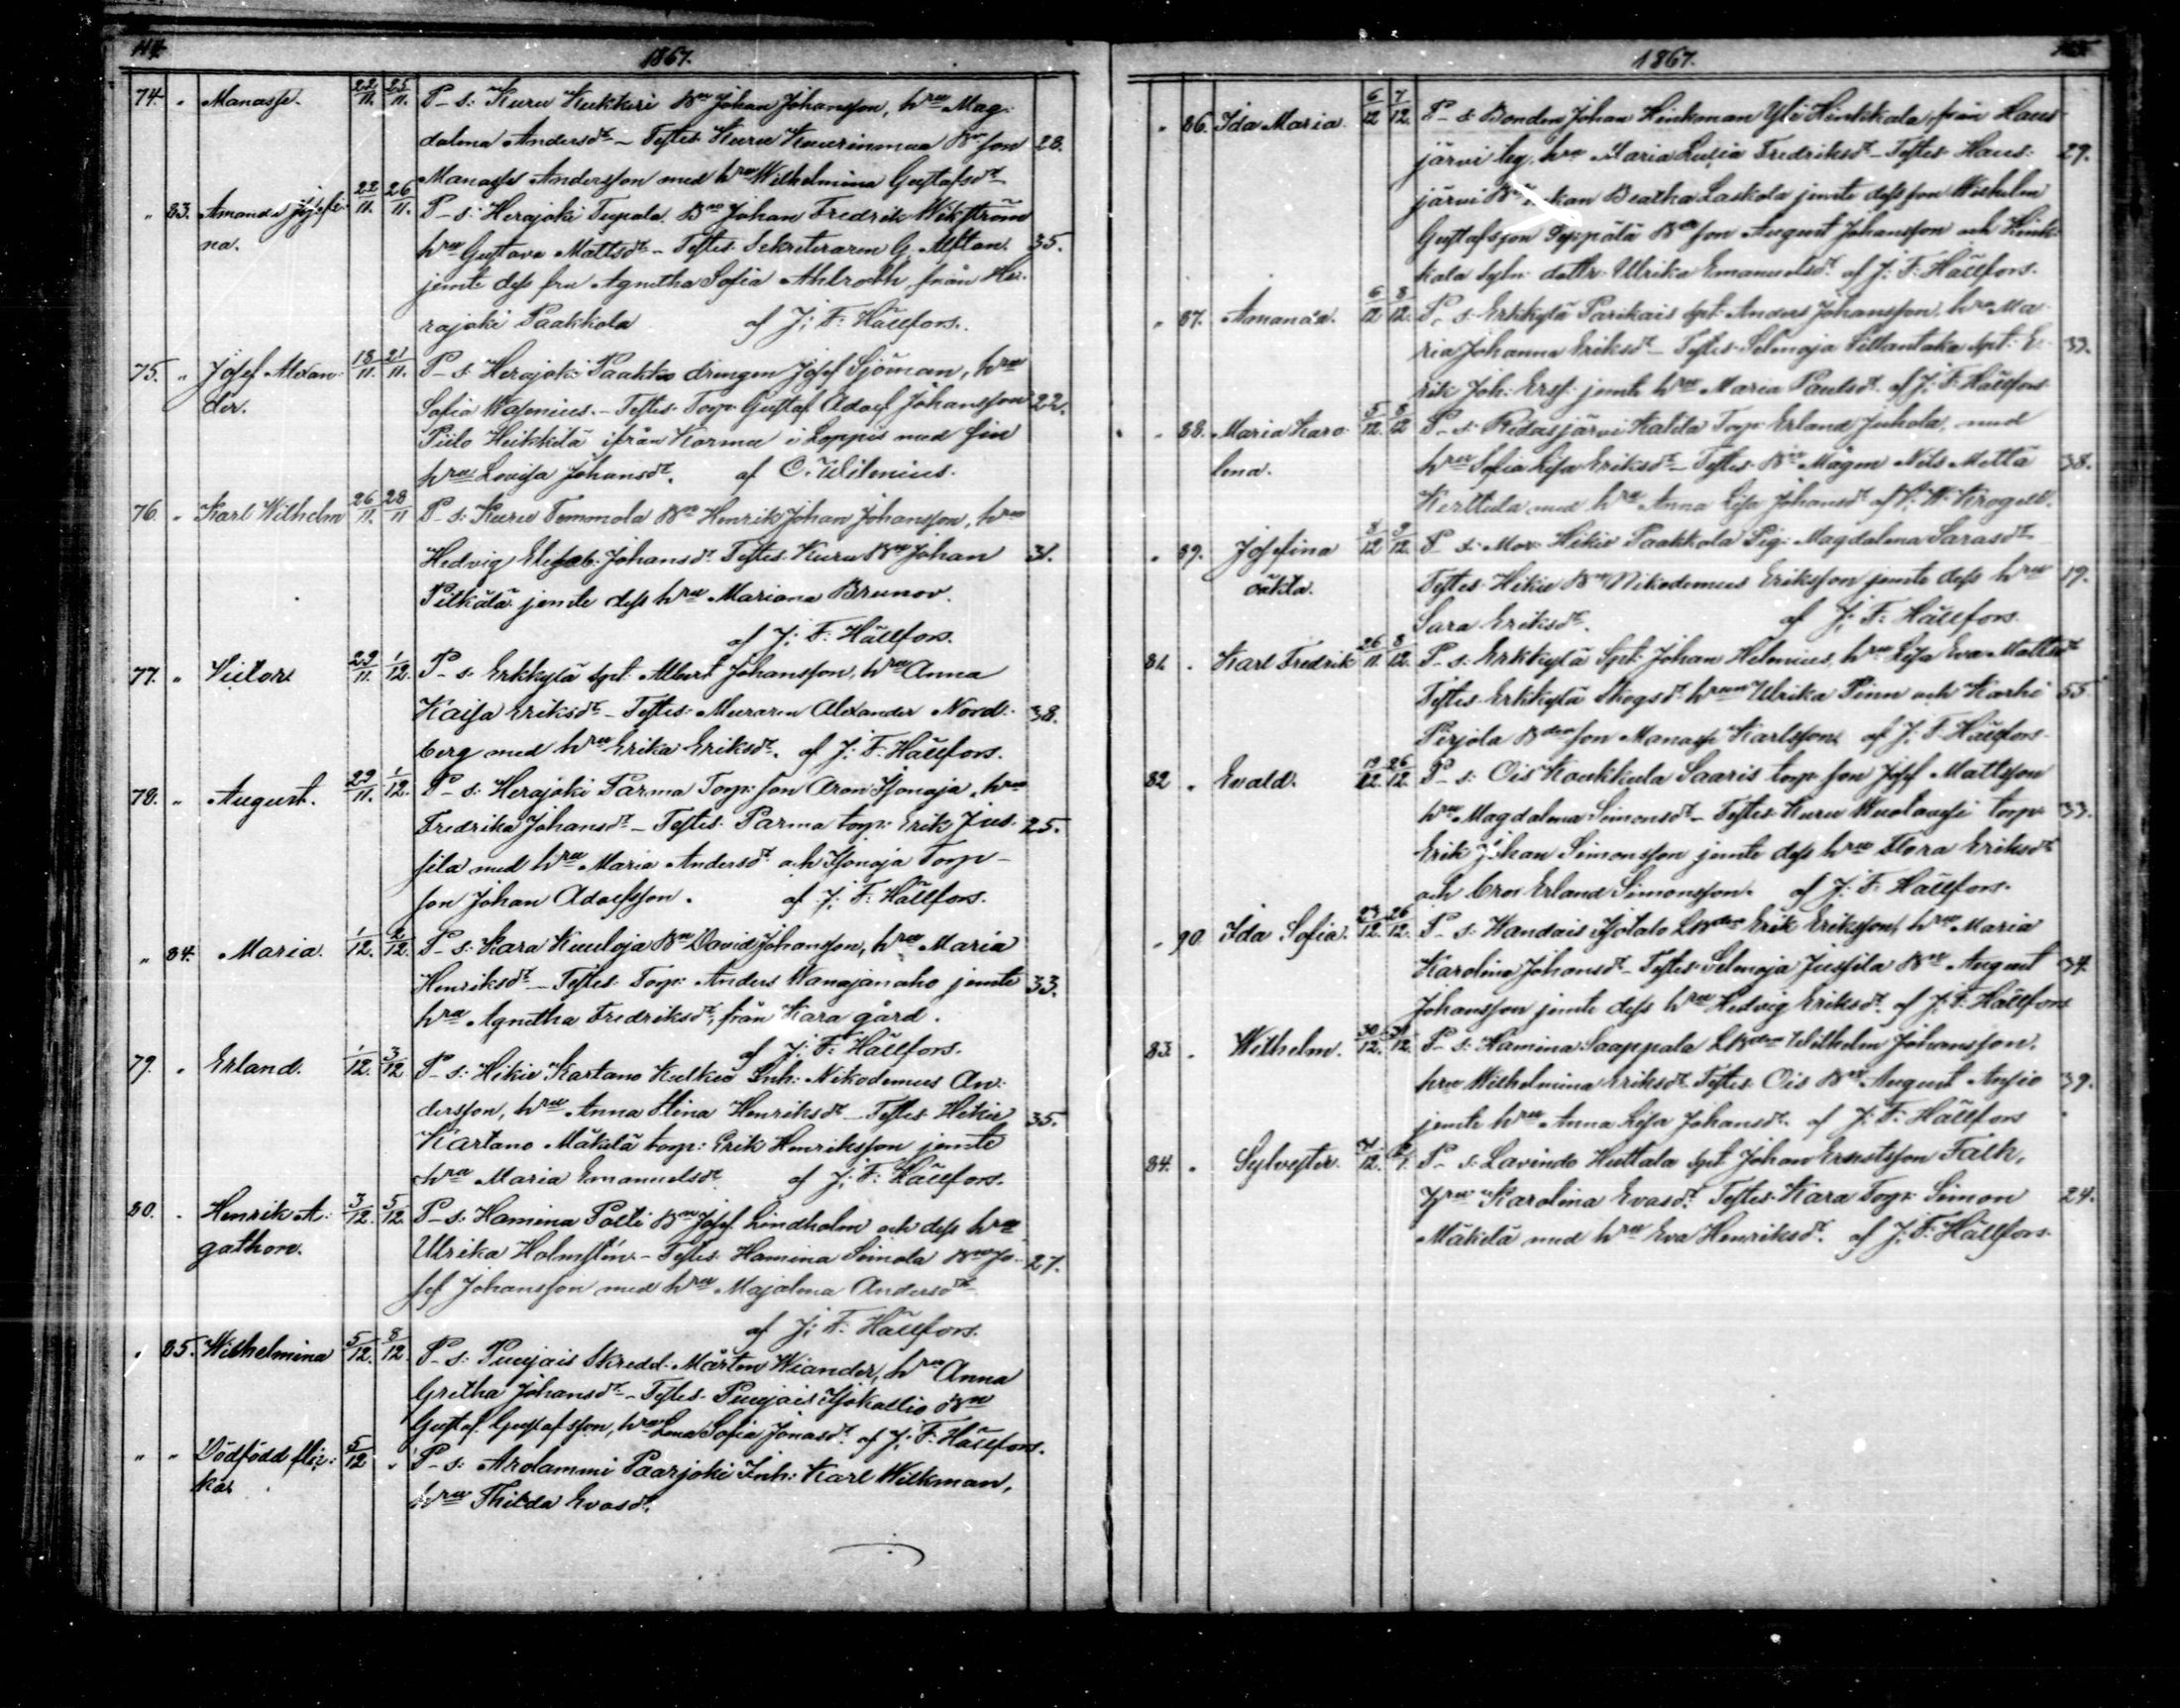 114.
1867.
74. " Manasse. 22/11. 25/11. P-s: Kuru Kukkuri Bn Johan Johansson, hru Mag-
dalena Andersdr – Testes Kuru Kaurinmaa Bn son 28.
Manasse Andersson med hru Wilhelmina Gustafsdr
" 83. Amanda Josefi- 22/11. 26/11. P-s: Herajoki Tupala Bn Johan Fredrik Wikström
na. hru Gustava Mattsdr – Testes Sekreteraren G. Alftan 35.
jemte dess fru Agnetha Sofia Ahlroth, från He-
rajoki Paakkola af J: F: Hällfors.
75. " Josef Alexan- 18/11. 21/11. P-s: Herajoki Paakko drengen Josef Sjöman, hru
der. Sofia Wasenius. – Testes Torp: Gustaf Adolf Johansson 22.
Piilo Heikkilä ifrån Kormu i Loppis med sin
hru Lovisa Johansdr. af C. Wilenius.
76. " Karl Wilhelm 26/11. 28/11 P-s: Kuru Tommola Bn Henrik Johan Johansson, hru
Hedvig Elisab: Johansdr. Testes Kuru Bn Johan 31.
Pitkälä jemte dess hru Mariana Brunov.
af J: F: Hällfors.
77. " Victor 29/11. 1/12. P-s: Erkkylä spt. Albert Johansson, hru Anna
Kaisa Eriksdr – Testes Muraren Alexander Nord- 38.
berg med hru Erika Eriksdr. af J: F: Hällfors.
78. " August. 29/11. 1/12. P-s: Herajoki Parma Torp: son Aron Isonoja, hru
Fredrika Johansdr – Testes Parma torp: Erik Jus- 25.
sila med hru Maria Andersdr och Isonoja Torp-
son Johan Adolfsson. af J: F: Hällfors.
" 84. Maria. 1/12. 2/12. P-s: Kara Kuuloja Bn David Johansson, hru Maria
Henriksdr – Testes Torp: Anders Wanajanaho jemte 33.
hru Agnetha Fredriksdr, från Kara gård.
af J: F: Hällfors.
79. " Erland. 1/12. 3/12 P-s: Hikie Kartano Kulkio Inh: Nikodemus An-
dersson, hru Anna Stina Henriksdr – Testes Hikie 35.
Kartano Mäkelä torp: Erik Henriksson jemte
hru Maria Emanuelsdr. af J: F: Hällfors.
80. " Henrik A- 3/12. 5/12. P-s: Hamina Polli Bn Josef Lindholm och dess hru
gathon. Ulrika Holmstén – Testes Hamina Simola Bn Jo- 27.
sef Johansson med hru Majalena Andersdr
af J: F: Hällfors.
" 85. Wilhelmina 5/12. 8/12. P-s: Puujais Skredd. Mårten Wiander, hru Anna
Gretha Johansdr – Testes Puujais Isokallio Bn
Gustaf Gustafsson, hru Lena Sofia Jonasdr. af J: F: Hällfors.
" " Dödfödd flic- 5/12 " P-s: Arolammi Paarjoki Inh: Karl Wilkman,
ka. hru Thilda Evasdr.
115
1867.
" 86. Ida Maria. 6/12 7/12. P-s: Bonden Johan Hinkman Yli Hinkkala från Haus-
järvi hru Maria Lusia Fredriksdr – Testes Haus- 29.
järvi Beatha Laskola jemte dess son Wilhelm
Gustafsson Seppälä Bn son August Johansson och Hink-
kala dottr. Ulrika Emanuelsdr. af J: F: Hällfors.
" 87. Amanda. 6/12 8/12. P-s: Erkkylä Parikais spt. Anders Johansson, hru Ma-
ria Johanna Eriksdr – Testes Selmoja Sillantaka spt. E- 33.
rik Joh: Erss. jemte hru Maria Paulsdr. af J: F: Hällfors
" 88. Maria Karo- 5/12. 8/12 P-s: Ridasjärvi Kalda Torp: Erland Juhola, med
lina. hru Sofia Lisa Eriksdr – Testes Bn Mågen Nils Mettä 38.
Kerttula med hru Anna Lisa Johansdr af K: W: Krogell.
" 89. Josefina 8/12 9/12. P-s: Mor: Hikie Paakkola Pig: Magdalena Sarasdr
oäkta. Testes Hikie Bn Nikodemus Eriksson jemte dess hru 19.
Sara Eriksdr. af J: F: Hällfors.
81 " Karl Fredrik 26/11. 8/12. P-s: Erkkylä Spt: Johan Helenius, hru Lisa Eva Mattsdr
Testes Erkkylä Skogsd. hrun Ulrika Pinn och Karhi 55
Perjola Bden son Manasse Karlsson af J: F: Hällfors.
82 " Evald. 19/12. 26/12. P-s: Ois Koukkula Saaris torp: son Josef Mattsson
hru Magdalena Simonsdr – Testes Kuru Wuolausi torp: 33.
Erik Johan Simonsson jemte dess hru Flora Eriksdr
och bror Erland Simonsson. af J: F: Hällfors.
" 90. Ida Sofia. 24/12. 26/12. P-s: Wandais Isotalo LBden Erik Eriksson, hru Maria
Karolina Johansdr – Testes Selmoja Jussila Bn August 34.
Johansson jemte dess hru Hedvig Eriksdr. af J: F: Hällfors
83. " Wilhelm. 30/12. 31/12. P-s: Hamina Saappala LBden Wilhelm Johansson,
hru Wilhelmina Eriksdr. Testes Ois Bn August Ansio 39.
jemte hru Anna Lisa Johansdr. af J: F: Hällfors
84. " Sylvester. 31/12. P-s: Lavinto Huttala spt Johan Ernstsson Falk,
hru Karolina Evasdr. Testes Kara Torp: Simon 24.
Mäkelä med hru Eva Henriksdr. af J: F: Hällfors.